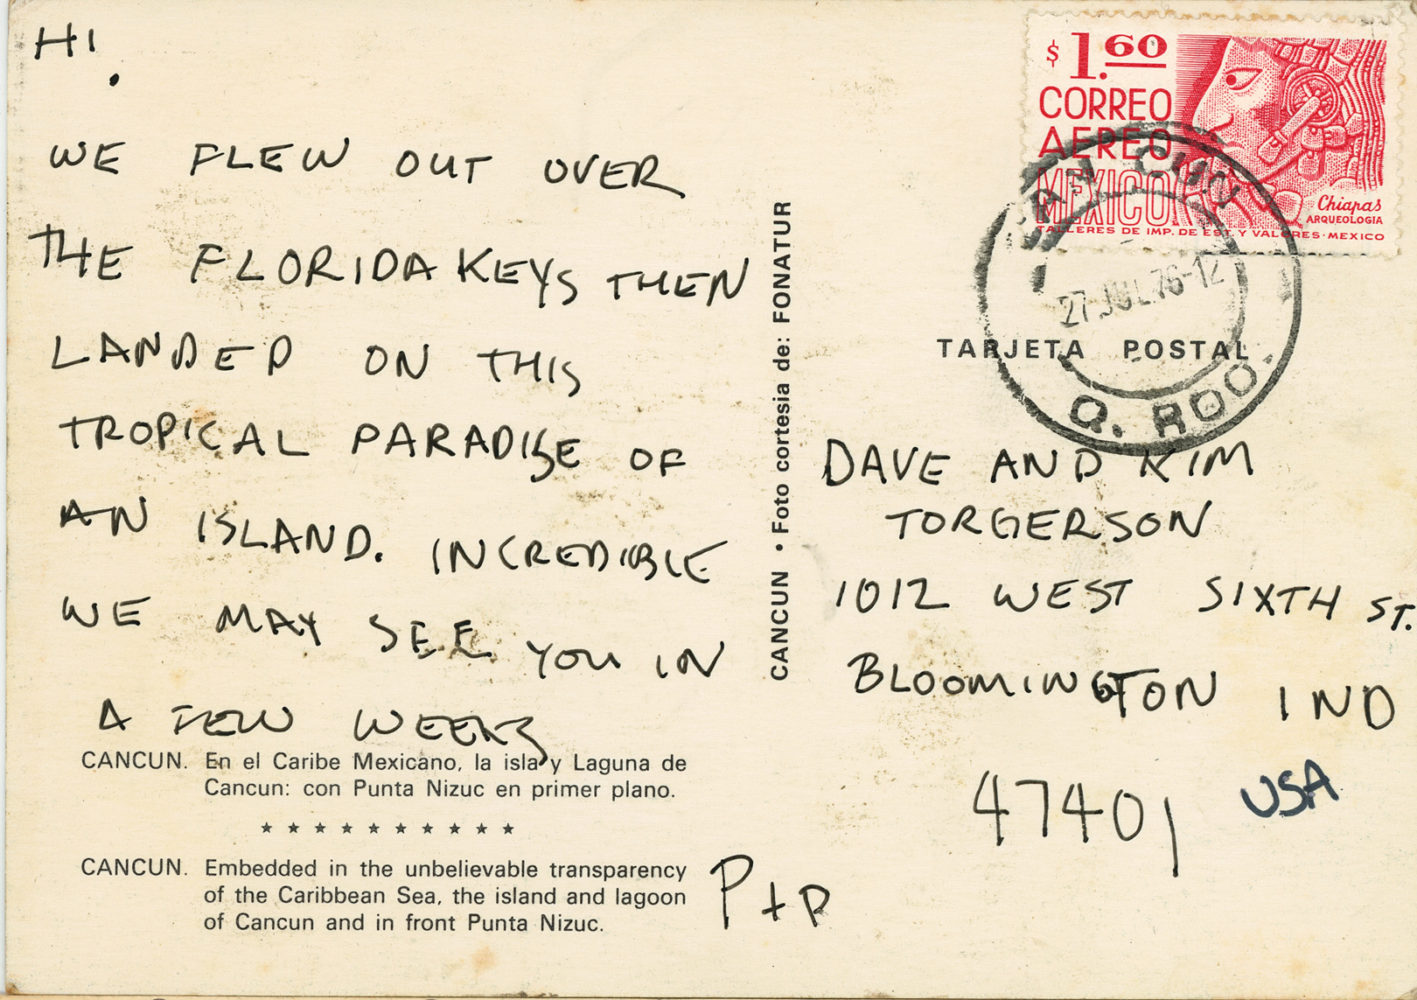 HI,
WE FLEW OUT OVER
THE FLORIDA KEYS THEN
LANDED ON THIS
TROPICAL PARADISE OF
AN ISLAND. INCREDIBLE
WE MAY SEE YOU IN
A FEW WEEKS
P + P
CANCUN. En el Caribe Mexicano, la isla y Laguna de
Cancun: con Punta Nizuc en primer plano.
★ ★ ★ ★ ★ ★ ★ ★ ★ ★
CANCUN. Embedded in the unbelievable transparency
of the Caribbean Sea, the island and lagoon
of Cancun and in front Punta Nizuc.
CANCUN • Foto cortesia de: FONATUR
$1.60
CORREO
AEREO
MEXICO
Chiapas
ARQUEOLOGIA
TALLERES DE IMP. DE EST. Y VALORES-MEXICO
CAN CUN
27 JUL 76-12
Q. ROO.
TARJETA POSTAL
DAVE AND KIM
TORGERSON
1012 WEST SIXTH ST.
BLOOMINGTON IND
47401 USA